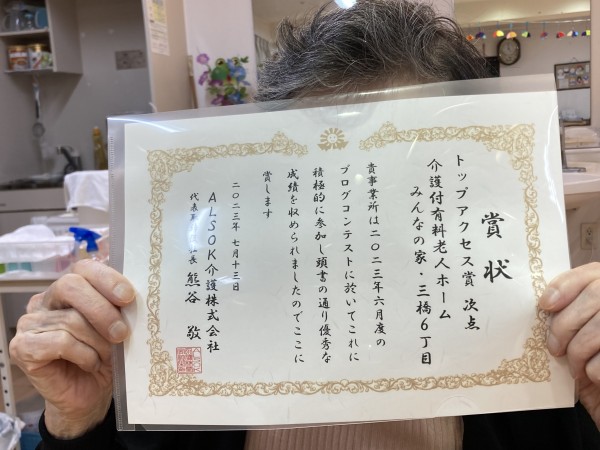 賞状
トップアクセス賞 次点
介護付有料老人ホーム
みんなの家・三橋6丁目
貴事業所は二〇二三年六月度の
ブログコンテストに於いてこれに
積極的に参加し頭書の通り優秀な
成績を収められましたのでここに
賞します
二〇二三年 七月十三日
ALSOK介護株式会社
代表 長 熊谷 敬